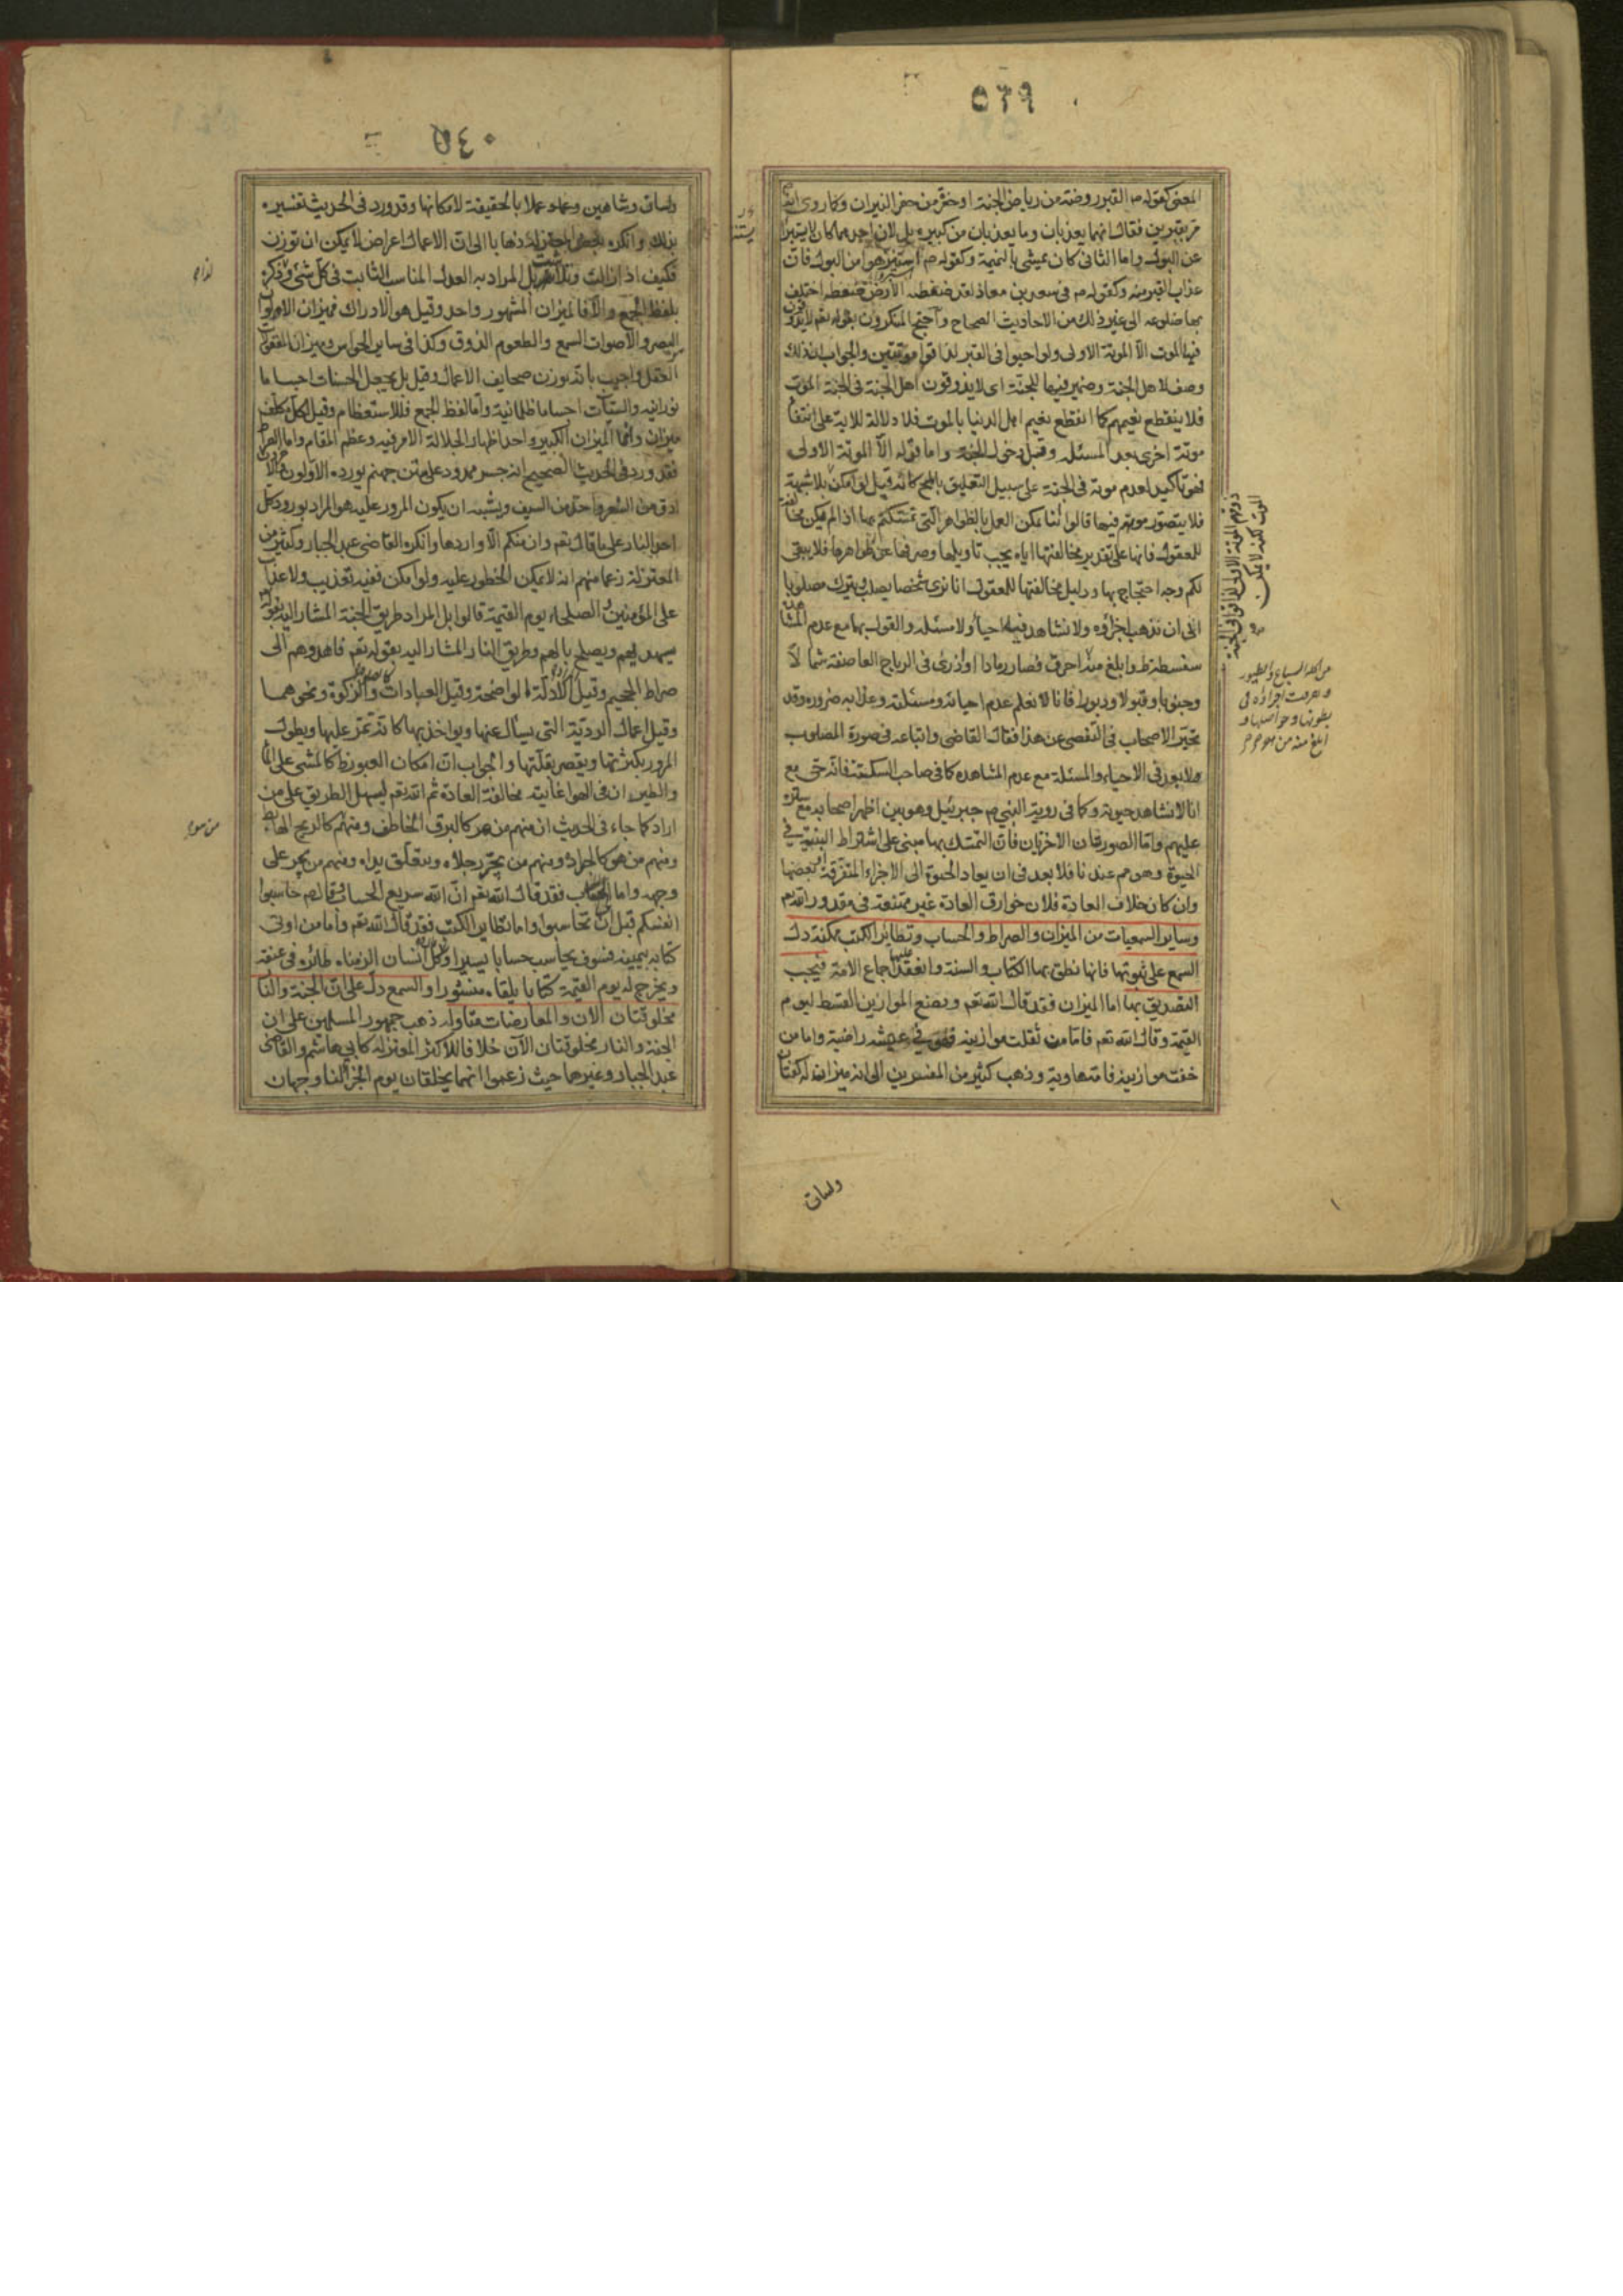 ٥٣٩
المعنى كقوله ص القبر روضة من رياض الجنة او حفرة من حفر النيران وكما روى انه
مر بقبرين فقال انهما يعذبان وما يعذبان من كبيرة بل لان احدهما كان لا يستبرأ
عن البول واما الثانى كان يمشى بالنميمة وكقوله ص استنزهوا من البول فان
عذاب القبر منه وكقوله ص فى سعد بن معاذ لقد ضغطه الارض ضغطة اختلف
بها ضلوعه الى غير ذلك من الاحاديث الصحاح واحتج المنكرون بقوله تعم لا يذوقون
فيها الموت الا الموتة الاولى ولو احيوا فى القبر لذاقوا موتتين والجواب ان ذلك
وصف لاهل الجنة وضمير فيها للجنة اى لا يذوقون اهل الجنة فى الجنة الموت
فلا ينقطع نعيمهم كما انقطع نعيم اهل الدنيا بالموت فلا دلالة للاية على انتفاء
موتة اخرى بعد المسئلة وقبل دخول الجنة واما قوله الا الموتة الاولى
فهو تاكيد لعدم موتهم فى الجنة على سبيل التعليق بالمحال كانه قيل لو امكن
فلا يتصور موتهم فيها قالوا انما يمكن العمل بالظواهر التى تمسكتم بها اذا لم يكن مخالفة
للمعقول فانها على تقدير مخالفتها اياه يجب تاويلها وصرفها عن ظواهرها فلا يبقى
لكم وجه احتجاج بها ودليل مخالفتها للمعقول انا نرى شخصا يصلب ويترك مصلوبا
الى ان تذهب اجزاؤه ولا نشاهد فيه احياء ولا مسئلة والقول بها مع عدم المشاهدة
سفسطة وابلغ منه احرق فصار رمادا او ذرى فى الرياح العاصفة شمالا
وجنوبا وقبولا ودبورا فانا لا نعلم عدم احيائه ومسئلته وعذابه ضرورة وقد
تحير الاصحاب فى التفصى عن هذا فقال القاضى واتباعه فى صورة المصلوب
لا بعد فى الاحياء والمسئلة مع عدم المشاهدة كما فى صاحب السكتة فانه حى مع
انا لا نشاهد حيوته وكما فى روية النبى ص جبرئيل وهو بين اظهر اصحابه مع ستره
عليهم واما الصورتان الاخريان فان التمسك بهما مبنى على اشتراط البنية فى
الحيوة وهو مم عندنا فلا بعد فى ان يعاد الحيوة الى الاجزاء المتفرقة او بعضها
وان كان خلاف العادة فلان خوارق العادة غير ممتنعة فى مقدور الله تعم
وساير السمعيات من الميزان والصراط والحساب وتطاير الكتب ممكنة دل
السمع على ثبوتها فانها نطق بها الكتاب والسنة وانعقد عليها اجماع الامة فيجب
التصديق بها اما الميزان فقد قال الله تعم ونضع الموازين القسط ليوم
القيمة وقال الله تعم فاما من ثقلت موازينه فهو فى عيشة راضية واما من
خفت موازينه فامه هاوية وذهب كثير من المفسرين الى انه ميزان له كفتان
من اكله السباع والطيور
وتفرقت اجزاؤه فى
بطونها وحواصلها و
ابلغ منه من
ولسان
٥٤٠
ولسان وشاهين وعملا بالحقيقة لامكانها وقد ورد فى الحديث تفسيره
بذلك وانكره بعض المعتزلة ذهابا الى ان الاعمال اعراض لا يمكن ان توزن
فكيف اذا زالت وتلاشت بل المراد به العدل المناسب الثابت فى كل شئ وذكره
بلفظ الجمع والا فالميزان المشهور واحد وقيل هو الادراك فميزان الالوان
البصر والاصوات السمع والطعوم الذوق وكذا فى ساير الحواس وميزان المعقولات
العقل واجيب بانه يوزن صحايف الاعمال وقيل بل يجعل الحسنات اجساما
نورانيه والسيئات اجساما ظلمانية واما لفظ الجمع فللاستعظام وقيل لكل مكلف
ميزان وانما الميزان الكبير واحد اظهار الجلالة الامر فيه وعظم المقام واما الصراط
فقد ورد فى الحديث الصحيح انه جسر ممدود على متن جهنم يورده الاولون والاخرون
ادق من الشعر واحد من السيف ويشبه ان يكون المرور عليه هو المراد بورود كل
احد النار على ما قال تعم وان منكم الا واردها وانكره القاضى عبد الجبار وكثير من
المعتزلة زعما منهم انه لا يمكن الخطور عليه ولو امكن ففيه تعذيب ولا عذاب
على المؤمنين والصلحاء يوم القيمة قالوا بل المراد طريق الجنة المشار اليه بقوله
سيهديهم ويصلح بالهم وطريق النار المشار اليه بقوله تعم فاهدوهم الى
صراط الجحيم وقيل الادلة الواضحة وقيل العبادات والزكوة ونحوهما
وقيل اعمال الردية التى يسأل عنها ويواخذ بها كانه تمر عليها ويطول
المرور بكثرتها ويقصر بقلتها والجواب ان امكان العبور ظ كالمشى على الماء
والطيران فى الهوا غايته مخالفة العادة ثم الله تعم يسهل الطريق على من
اراد كما جاء فى الحديث ان منهم من هو كالبرق الخاطف ومنهم كالريح الهابط
ومنهم من هو كالجواد ومنهم من يجر رجلاه ويتعلق يداه ومنهم من يجر على
وجهه واما الحساب فقد قال الله تعم ان الله سريع الحساب وقال ص حاسبوا
انفسكم قبل ان تحاسبوا واما تطاير الكتب فقد قال الله تعم واما من اوتى
كتابه بيمينه فسوف يحاسب حسابا يسيرا وكل انسان الزمناه طائره فى عنقه
ويخرج له يوم القيمة كتابا يلقاه منشورا والسمع دل على ان الجنة والنار
مخلوقتان الان والمعارضات متاولة ذهب جمهور المسلمين على ان
الجنة والنار مخلوقتان الآن خلافا لاكثر المعتزلة كابى هاشم والقاضى
عبد الجبار وغيرهما حيث زعموا انهما يخلقان يوم الجزا لنا وجهان